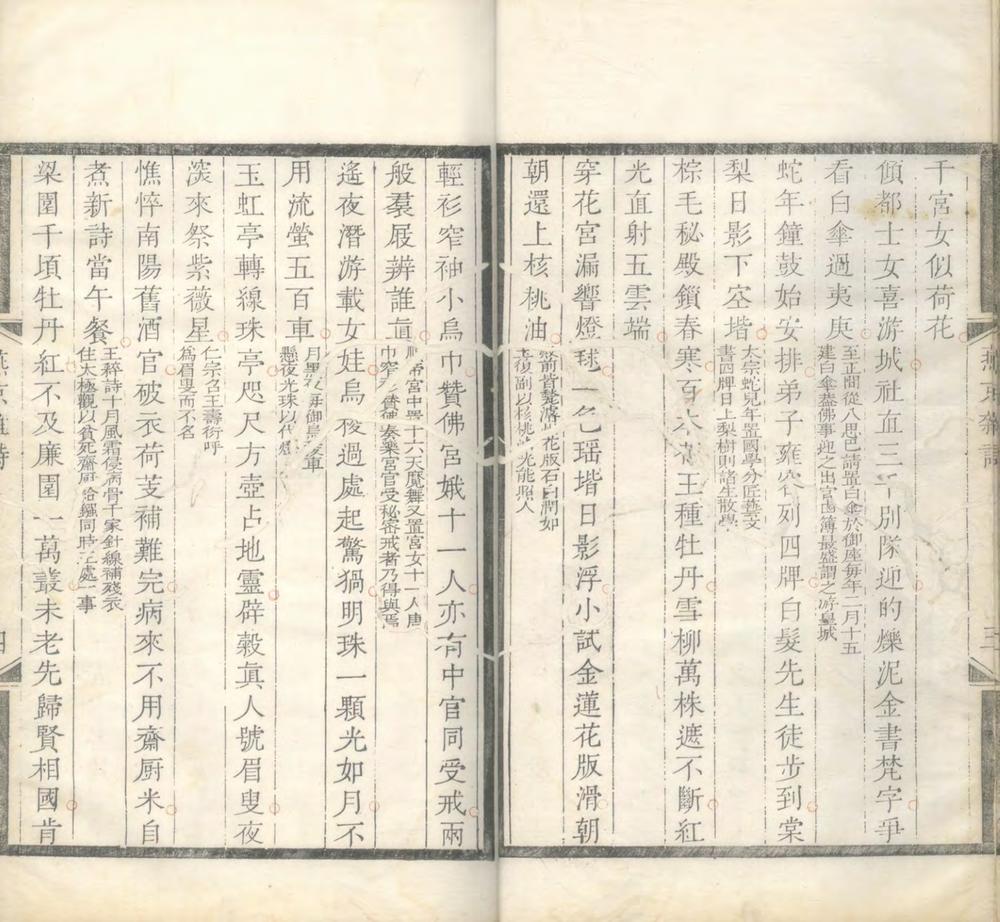 干宮女似荷花
傾都士女喜游城社直三千別隊迎的爍泥金書梵字爭
看白傘過夷庚
至正間從八思巴請置白傘於御座每年二月十五
建白傘蓋佛事迎之出宮鹵簿最盛謂之游皇城
蛇年鐘鼓始安排弟子雍容列四牌白髮先生徒步到棠
梨日影下空堦
太宗蛇兒年置國學分匠藝文
書四牌日上梨樹則諸生散學
棕毛秘殿鎖春寒百本王種牡丹雪柳萬株遮不斷紅
光直射五雲端
穿花宮漏響燈毬一色瑶堦日影浮小試金蓮花版滑朝
朝還上核桃油
花版石白潤如
光能照人
輕衫窄袖小烏巾贊佛宮娥十一人亦有中官同受戒兩
般羣屐辨誰直
宮中置十六天魔舞又置宮女十一人唐
巾窄奏樂宮官受秘密戒者乃得與焉
遙夜潛游載女娃烏稜過處起驚猧明珠一顆光如月不
用流螢五百車
懸夜光珠以代燈
玉虹亭轉線珠亭咫尺方壺占地靈辟穀真人號眉叟夜
深來祭紫薇星
仁宗召王壽衍呼
為眉叟而不名
憔悴南陽舊酒官破衣荷芰補難完病來不用齋厨米自
煮新詩當午餐
王粹詩十月風霜侵病骨千家針線補殘衣
住太極觀以貧死齋厨同時處一事
梁園千頃牡丹紅不及廉園一萬叢未老先歸賢相國肯
三
四